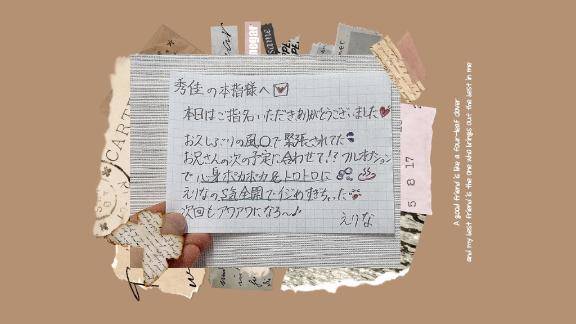 秀佳の本指様へ
本日はご指名いただきありがとうございました
お久しぶりの風〇で緊張されてた
お兄さんの次の予定に合わせて!? フルオプション
で心身ポカポカ&トロトロに
えりなのS気全開でイジめすぎちった
次回もアワアワになろ〜♪
えりな
A good friend is like a four-leaf clover
and my best friend is the one who brings out the best in me
CARTE
5 8 17